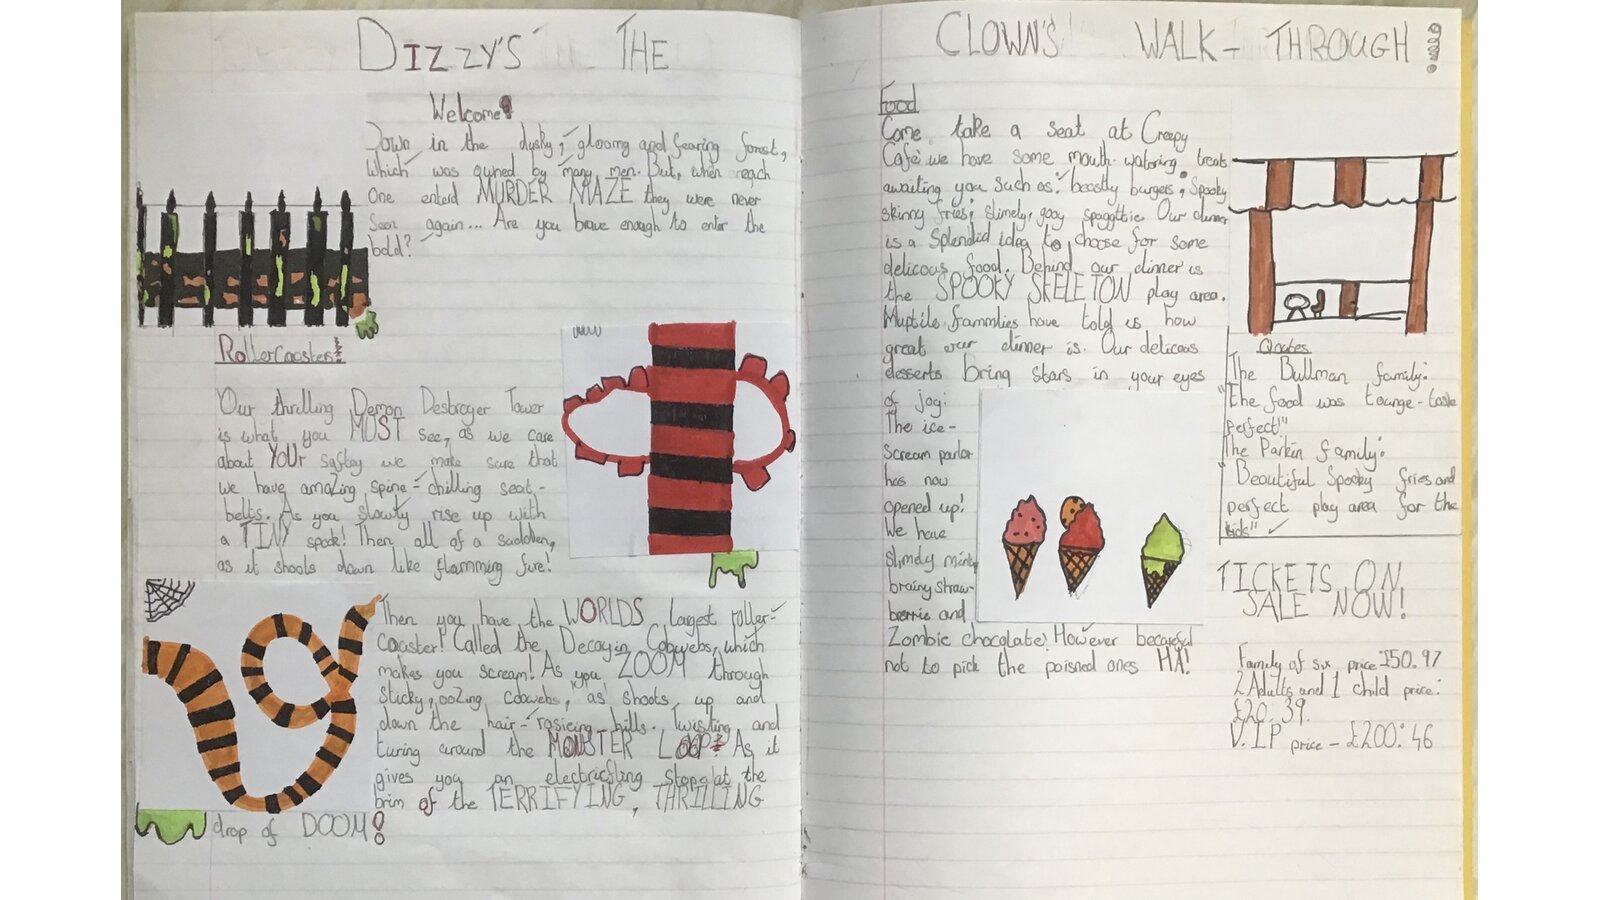 DIZZY'S THE CLOWN'S WALK-THROUGH!
Welcome!
Down in the dusky, gloomy and fearing forest,
Which was owned by many men. But, when each
One enterd MURDER MAZE they were never
Seen again... Are you brave enough to enter the
bold?
RollerCoasters!
Our thrilling Demon Destroyer Tower
is what you MUST see, as we care
about YOUr saftey we make sure that
we have amazing spine-chilling seat-
belts. As you slowly rise up with
a TINY spook! Then all of a sudden,
as it shoots down like flamming fire!
Then you have the WORLDS largest roller-
Coaster! Called the Decayin Cobwebs, which
makes you scream! As you ZOOM through
sticky, oozing cobwebs, as shoots up and
down the hair-rasieing hills. Twisting and
turing around the MONSTER LOOP! As it
gives you an electricfling stop at the
brim of the TERRIFYING, THRILLING
drop of DOOM!
Food
Come take a seat at Creepy
Cafe we have some mouth-watering treats
awaiting you such as: beastly burgers, Spooky
skinny fries, slimely, gooy spagttie. Our dinner
is a splendid idea to choose for some
delicous food. Behind our dinner is
the SPOOKY SKELETON play area.
Muptile fammlies have told us how
great our dinner is. Our delicous
desserts bring stars in your eyes
of joy:
The ice-
Scream parlor
has now
opened up!
We have
slimdy mint,
brainy straw-
berrie and
Zombie chocolate! However becareful
not to pick the poisned ones HA!
Quotes
The Bullman family:
"The food was tounge-taste
perfect!"
The Parkin family:
"Beautiful Spooky fries and
perfect play area for the
kids"
TICKETS ON
SALE NOW!
Family of six price £50.97
2 Adults and 1 child price:
£20.39.
V.I.P price - £200:46